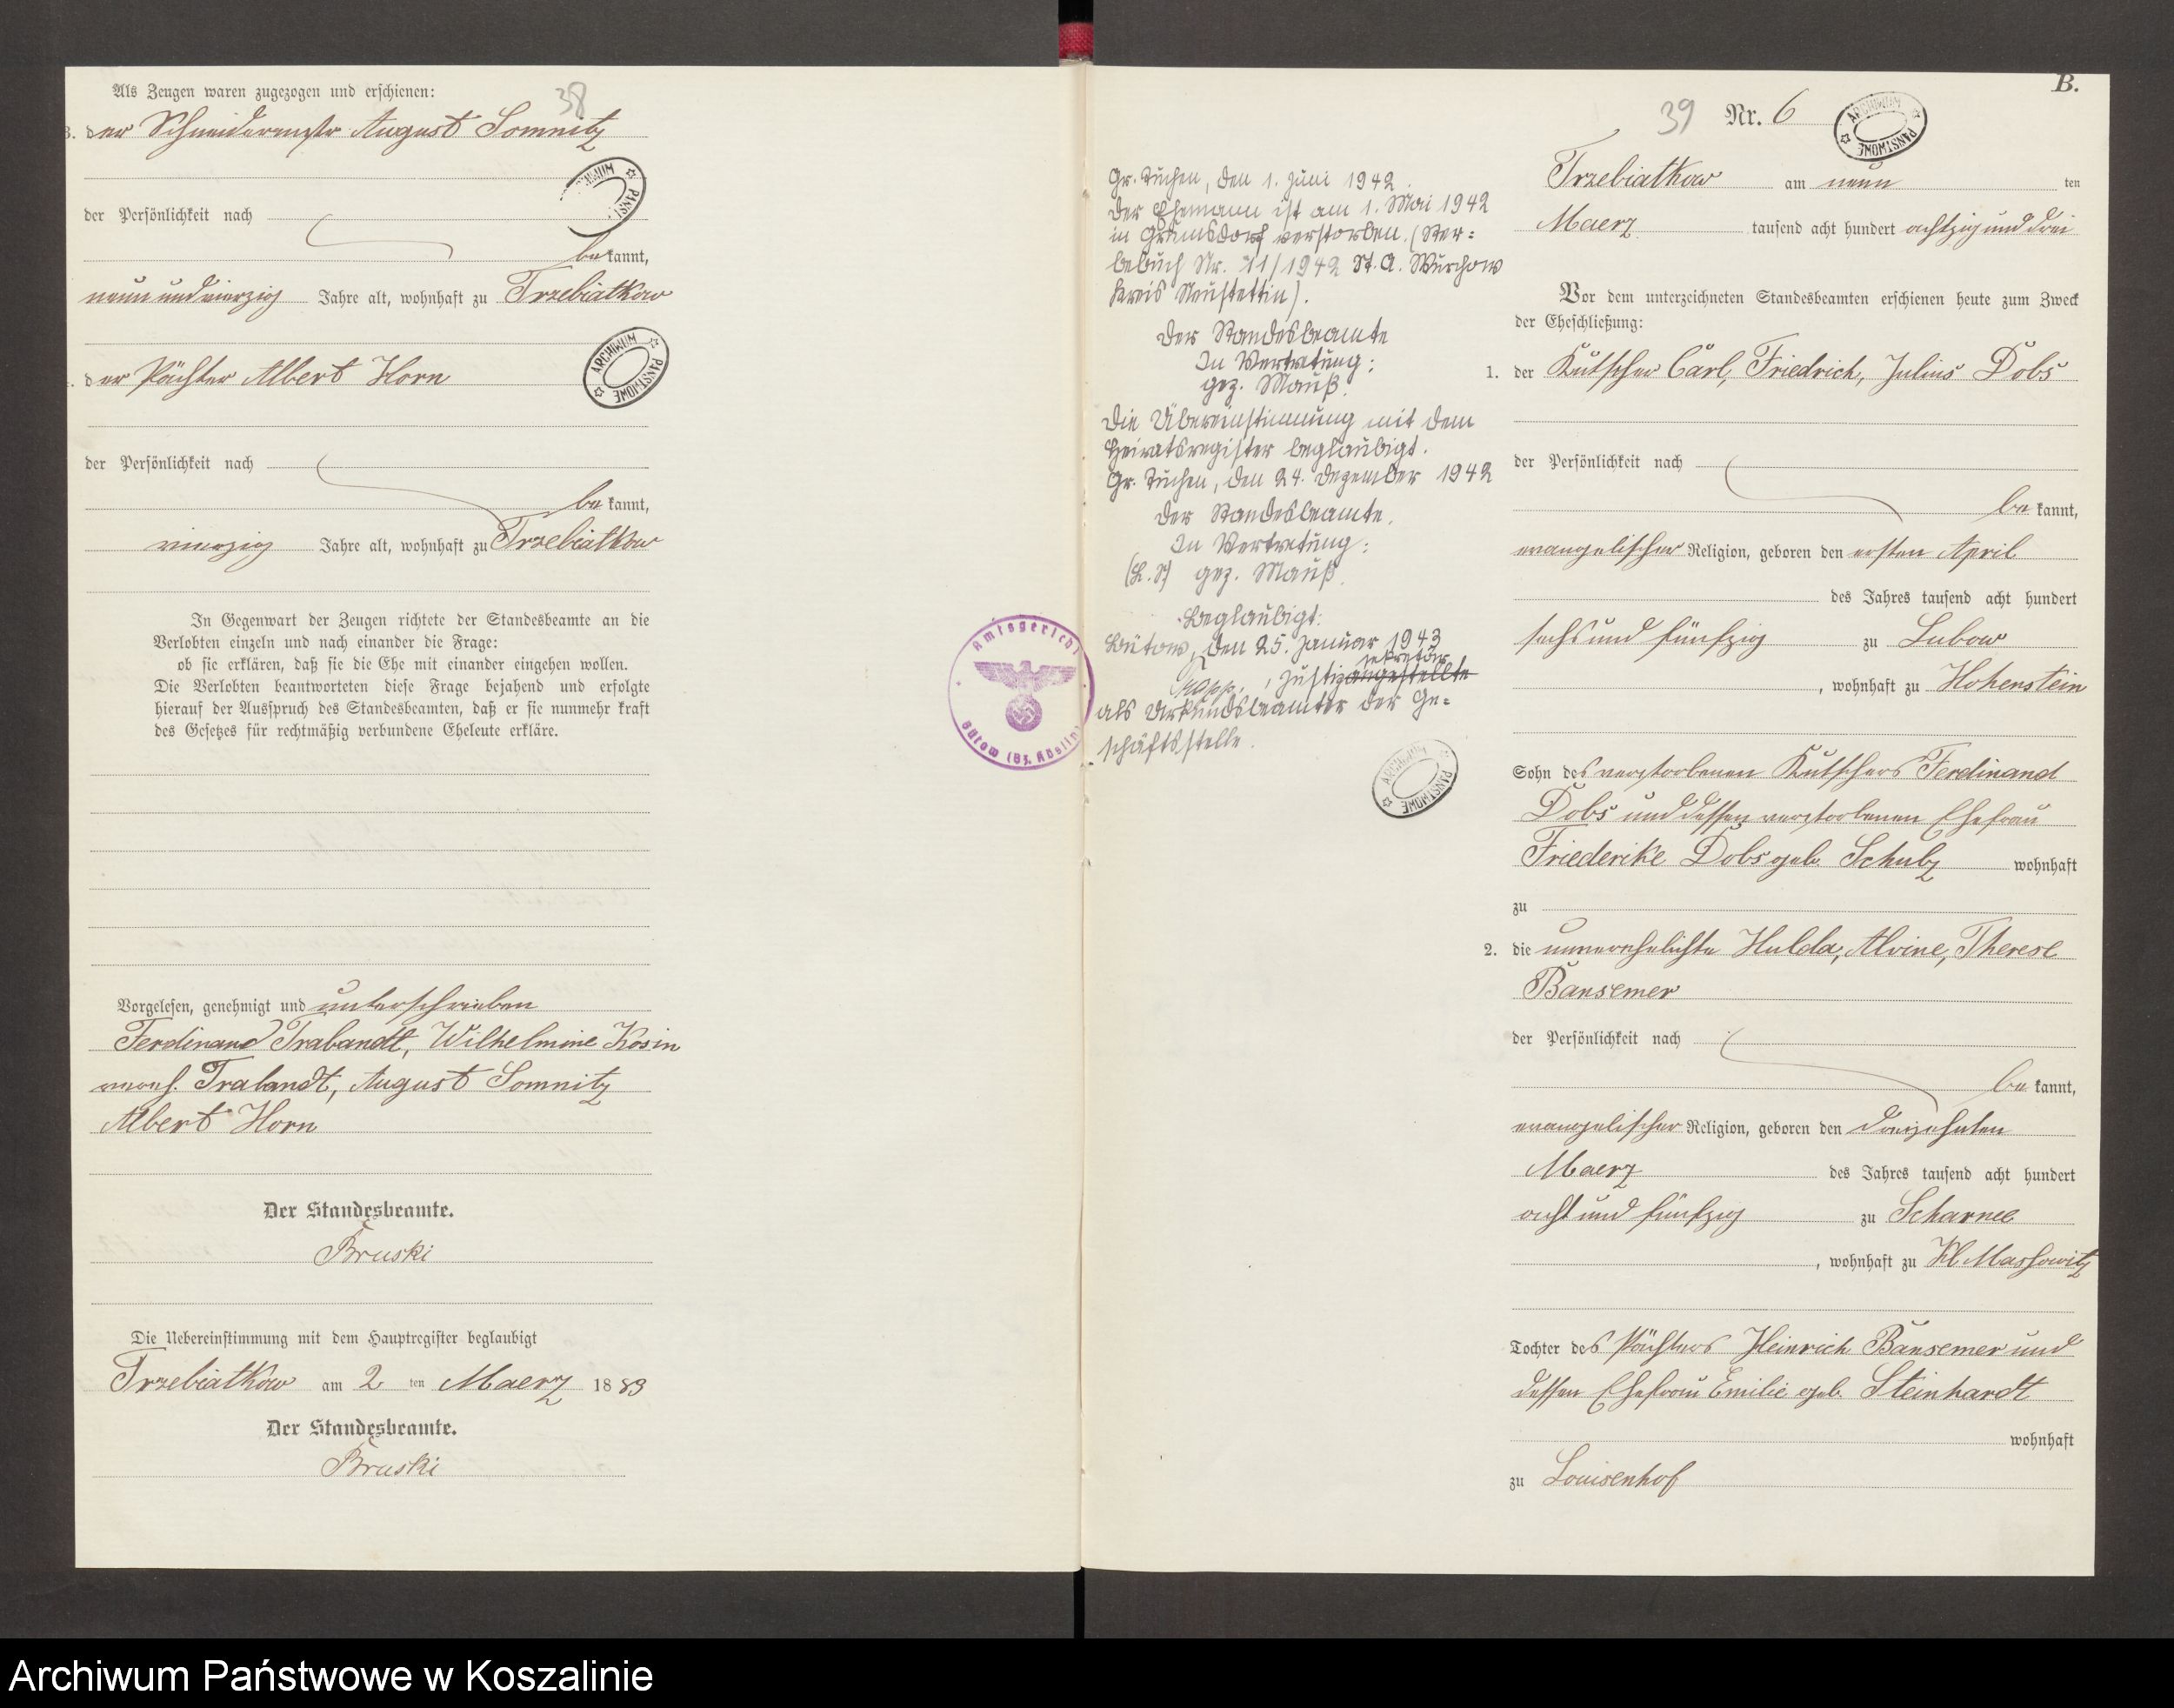 Als Zeugen waren zugezogen und erschienen:
38
3. der Schneidermstr August Somnitz
der Persönlichkeit nach
bekannt,
neun und vierzig Jahre alt, wohnhaft zu Trzebiatkow
4. der Pächter Albert Horn
der Persönlichkeit nach
bekannt,
vierzig Jahre alt, wohnhaft zu Trzebiatkow
In Gegenwart der Zeugen richtete der Standesbeamte an die
Verlobten einzeln und nach einander die Frage:
ob sie erklären, daß sie die Ehe mit einander eingehen wollen.
Die Verlobten beantworteten diese Frage bejahend und erfolgte
hierauf der Ausspruch des Standesbeamten, daß er sie nunmehr kraft
des Gesetzes für rechtmäßig verbundene Eheleute erkläre.
Vorgelesen, genehmigt und unterschrieben
Ferdinand Trabandt, Wilhelmine Kosin
vereh. Trabandt, August Somnitz
Albert Horn
Der Standesbeamte.
Bruski
Die Uebereinstimmung mit dem Hauptregister beglaubigt
Trzebiatkow am 2 ten Maerz 1883
Der Standesbeamte.
Bruski
ARCHIWUM PAŃSTWOWE
Amtsgericht
Bütow (Bz. Köslin)
Gr. Tuchen, den 1. Juni 1942.
Der Ehemann ist am 1. Mai 1942
in Grumsdorf verstorben. (Ster=
bebuch Nr. 11/1942 St. A. Wurchow
Kreis Neustettin).
Der Standesbeamte
In Vertretung:
gez. Mauß.
Die Übereinstimmung mit dem
Heiratsregister beglaubigt.
Gr. Tuchen, den 24. Dezember 1942
Der Standesbeamte.
In Vertretung:
(L. S) gez. Mauß.
Beglaubigt:
Bütow, den 25. Januar 1943
sekretär
, Justizangestellte
als Urkundsbeamter der Ge=
schäftsstelle.
ARCHIWUM PAŃSTWOWE
B.
39 Nr. 6
Trzebiatkow am neun ten
Maerz tausend acht hundert achtzig und drei
Vor dem unterzeichneten Standesbeamten erschienen heute zum Zweck
der Eheschließung:
1. der Kutscher Carl, Friedrich, Julius Dobs
der Persönlichkeit nach
bekannt,
evangelischer Religion, geboren den ersten April
des Jahres tausend acht hundert
sechs und fünfzig zu Lubow
, wohnhaft zu Hohenstein
Sohn des verstorbenen Kutschers Ferdinand
Dobs und dessen verstorbenen Ehefrau
Friederike Dobs geb. Schulz wohnhaft
zu
2. die unverehelichte Hulda, Alvine, Therese
Bansemer
der Persönlichkeit nach
bekannt,
evangelischer Religion, geboren den dreizehnten
Maerz des Jahres tausend acht hundert
acht und fünfzig zu Scharnee
, wohnhaft zu Kl. Massowitz
Tochter des Pächters Heinrich Bansemer und
dessen Ehefrau Emilie geb. Steinhardt
wohnhaft
zu Louisenhof
Archiwum Państwowe w Koszalinie